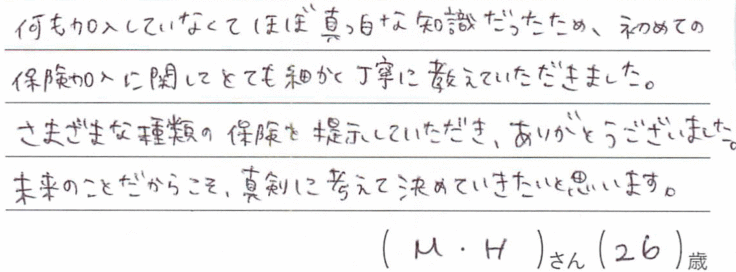 何も加入していなくてほぼ真っ白な知識だったため、初めての
保険加入に関してとても細かく丁寧に教えていただきました。
さまざまな種類の保険を提示していただき、ありがとうございました。
未来のことだからこそ、真剣に考えて決めていきたいと思います。
(M・H)さん(26)歳